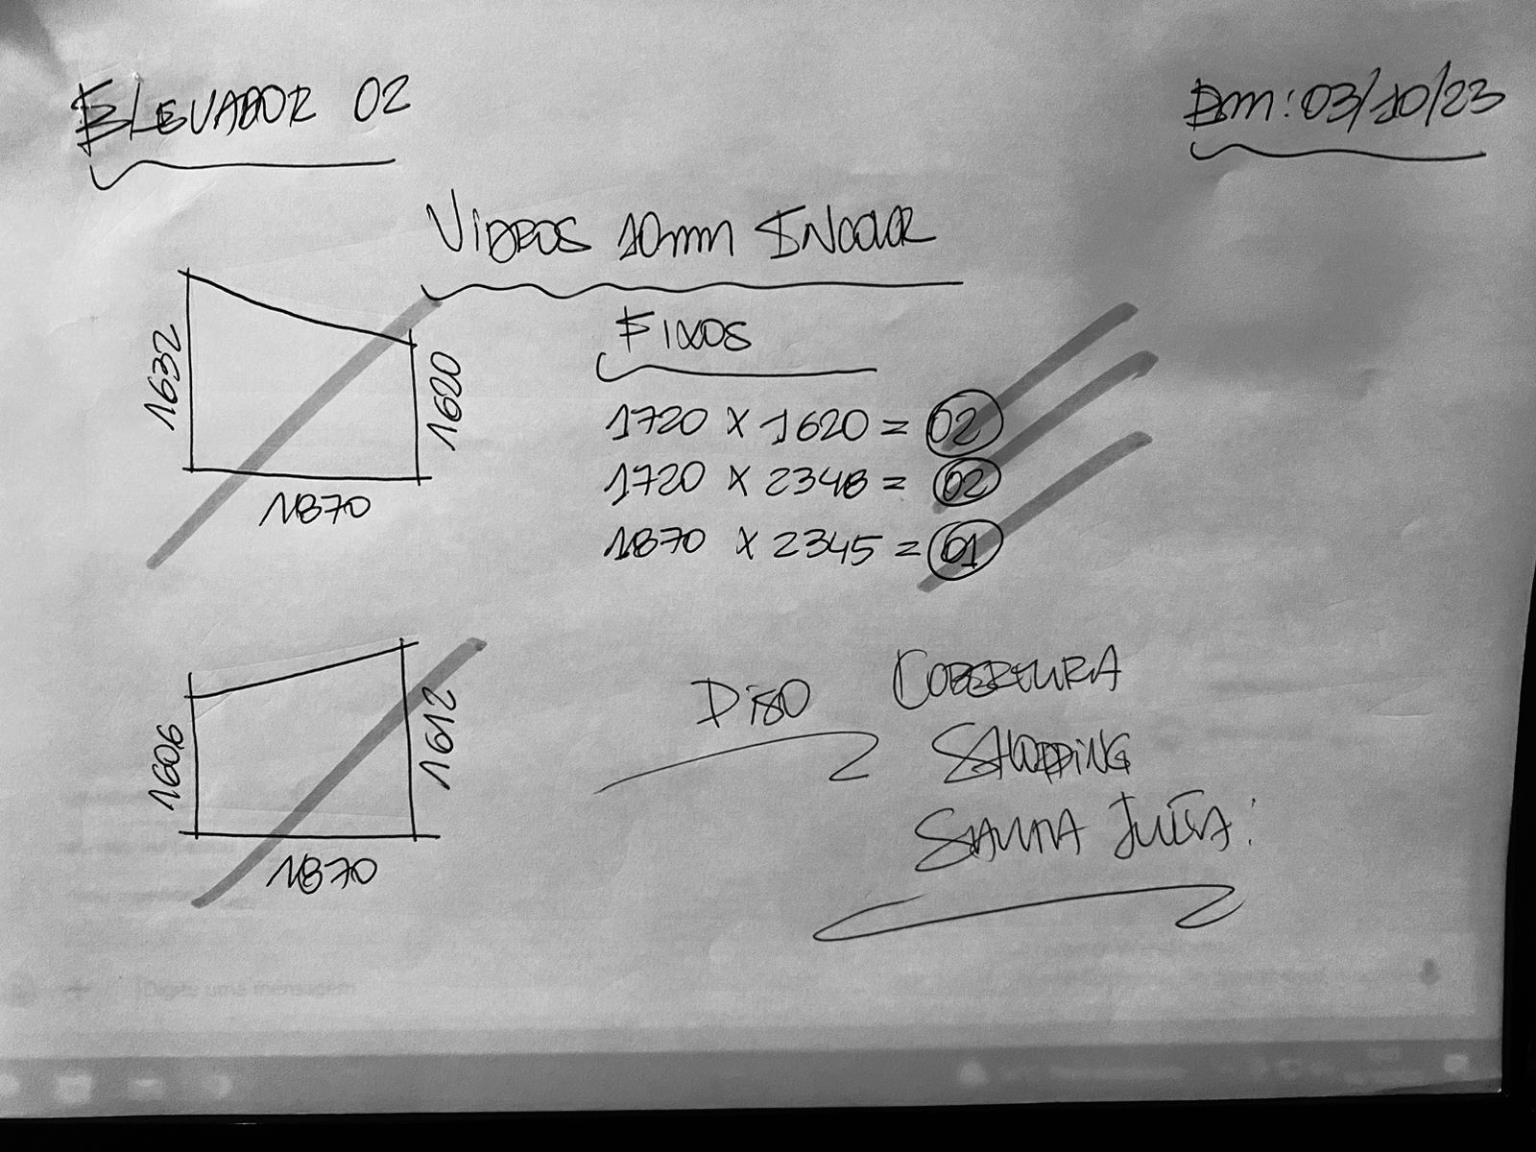 ELEVADOR 02
Em: 03/10/23
VIDROS 10mm INCOLOR
FIXOS
1632
1620
1870
1720 X 1620 = 02
1720 X 2348 = 02
1870 X 2345 = 01
1606
1612
1870
PISO COBERTURA
SHOPPING
SANTA
Digite uma mensagem